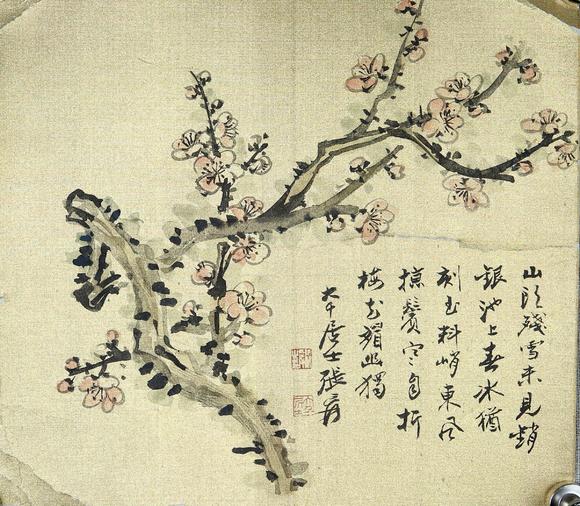 山頭殘雪未見銷
銀池上春冰猶
刻玉料峭東風
掠鬢寒自折
梅花媚幽獨
大千居士張爰